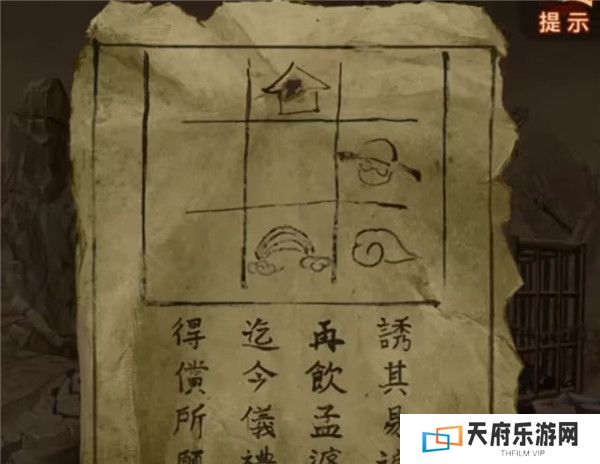 提示
誘其易
再飲孟婆
迄今儀禮
得償所願
天府乐游网
THFILM.VIP